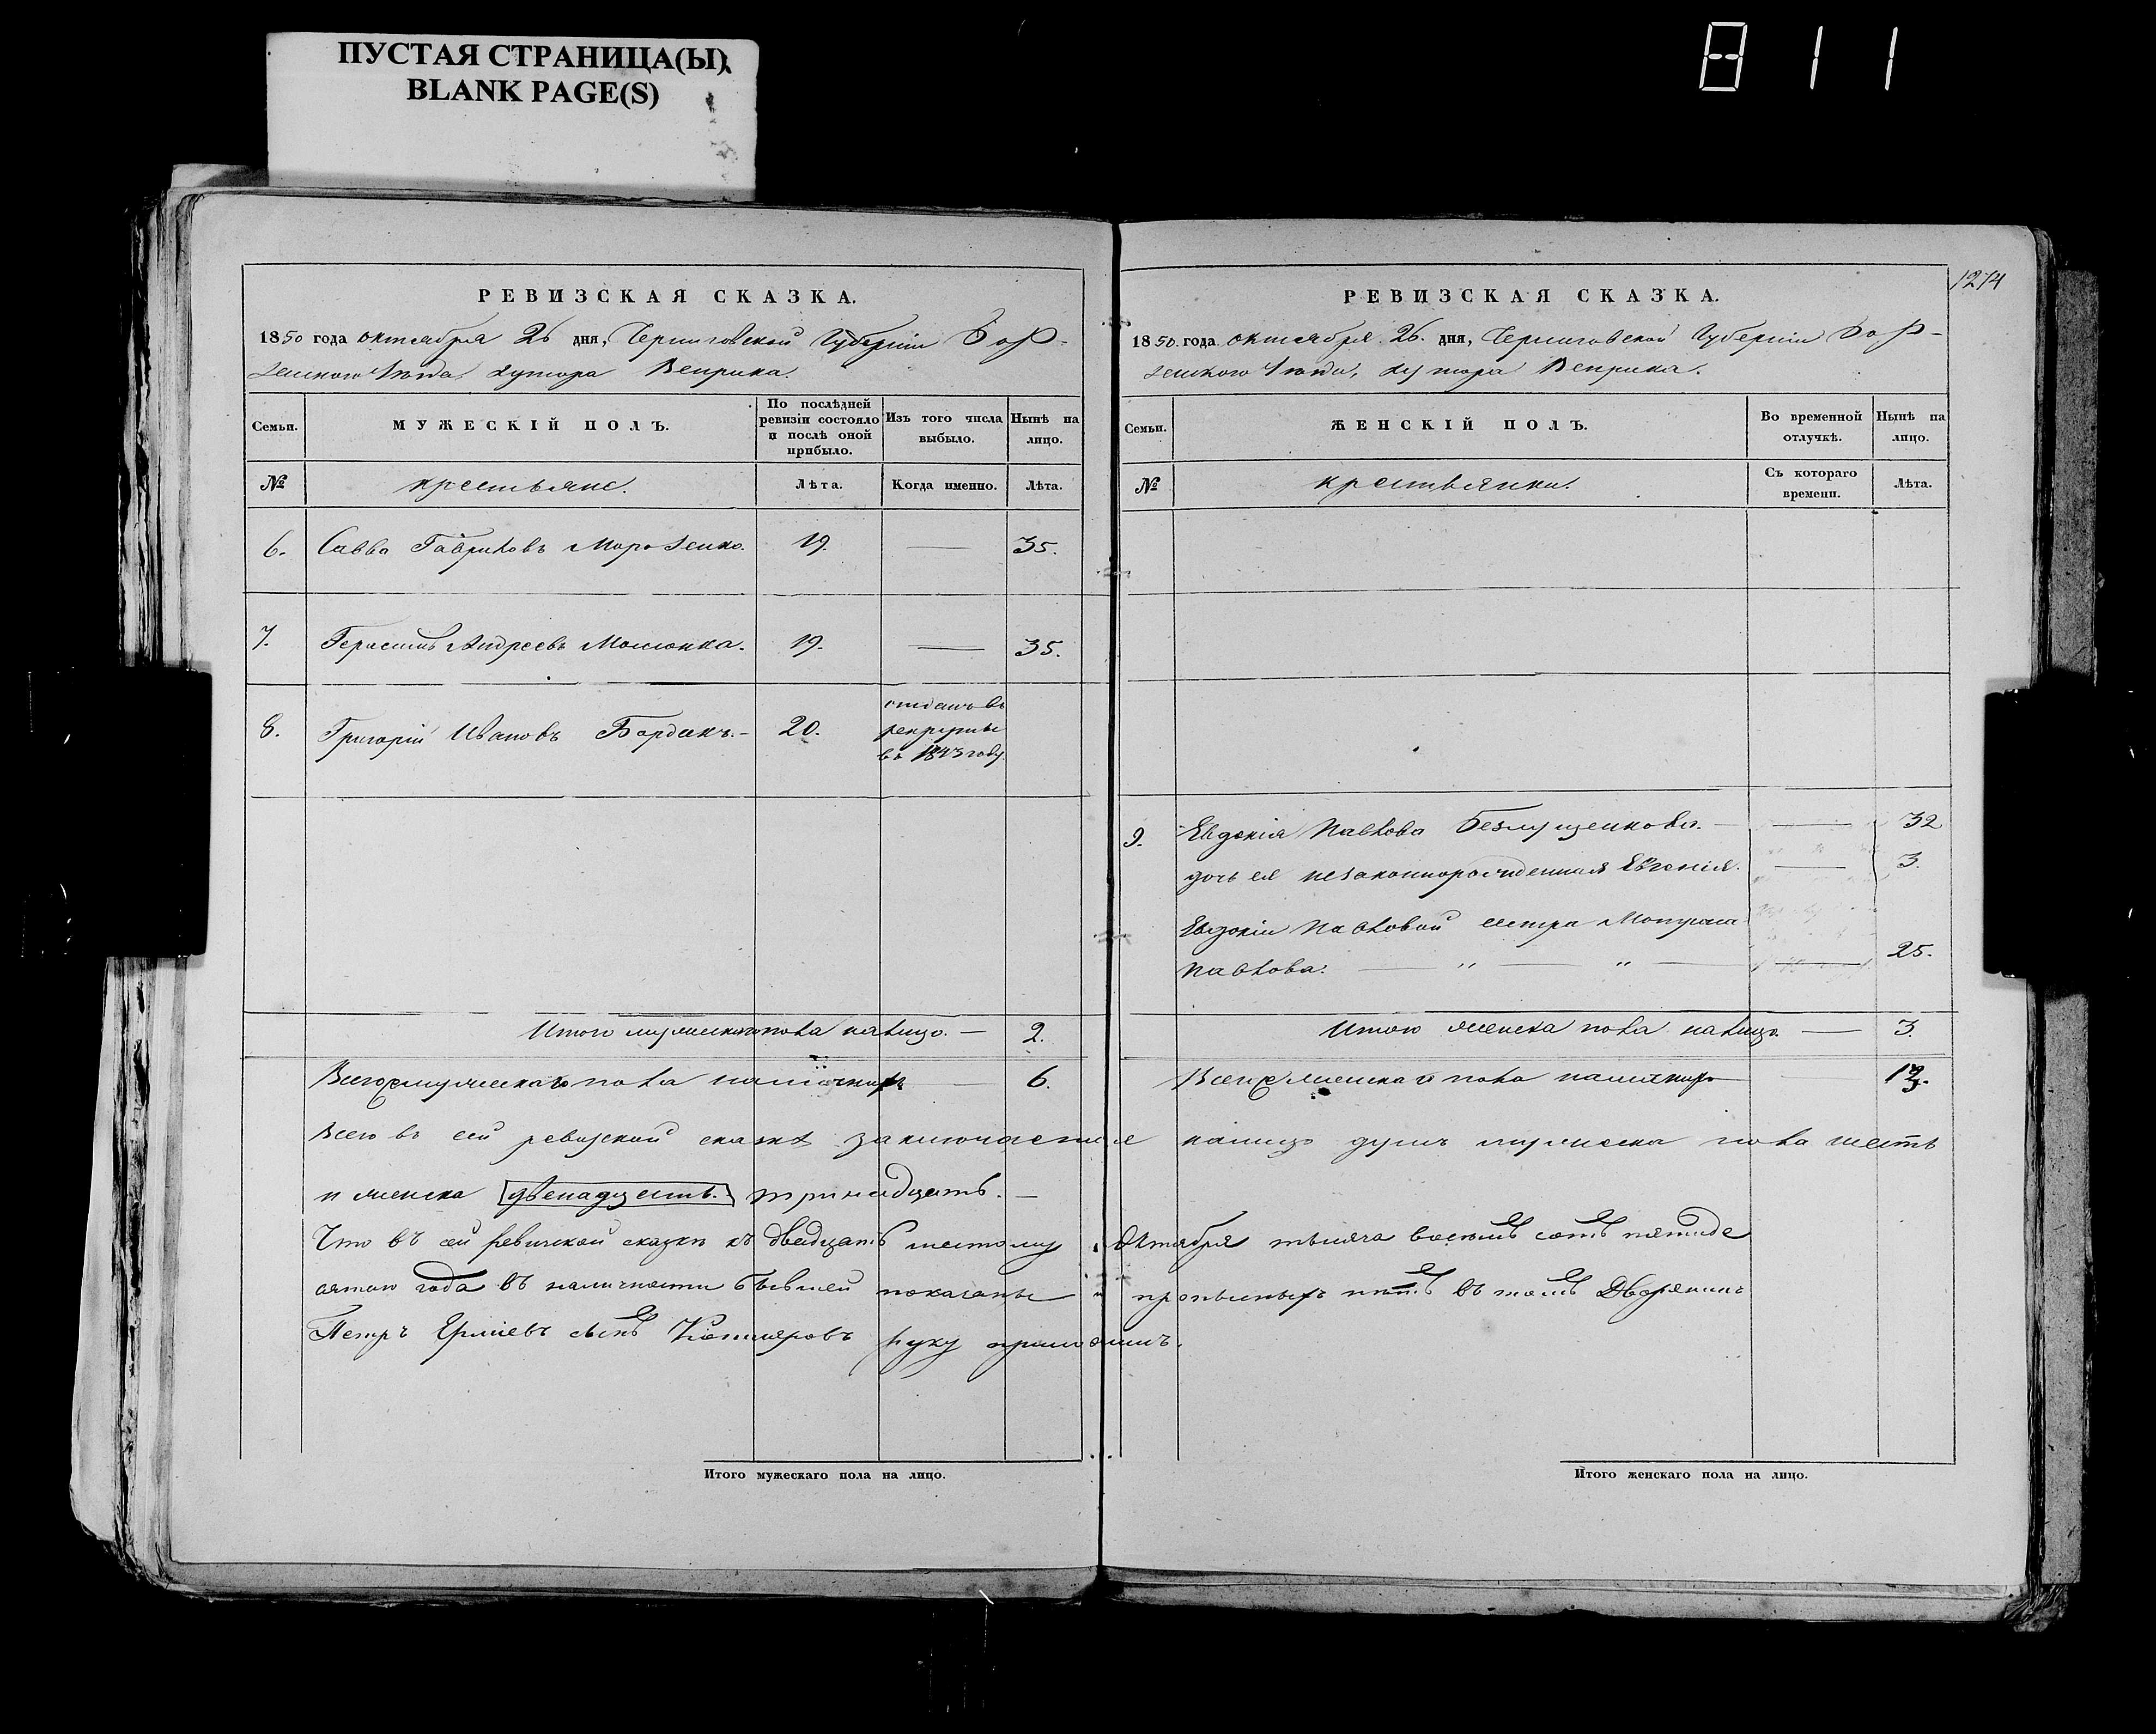 ПУСТАЯ СТРАНИЦА(Ы)
BLANK PAGE(S)
811
1274
РЕВИЗСКАЯ СКАЗКА.
1850 года октября 26 дня, Черниговской Губерніи Бор-
зенскаго Уѣзда хутора Веприка.
Семьи.
МУЖЕСКІЙ ПОЛЪ.
По послѣдней ревизіи состояло и послѣ оной прибыло.
Изъ того числа выбыло.
Нынѣ на лицо.
№
крестьяне.
Лѣта.
Когда именно.
Лѣта.
6. Савва Гавриловъ Морозенко. 19. — 35.
7. Герасимъ Андреевъ 19. — 35.
8. Григорій Ивановъ Бардакъ. 20.
отданъ въ
рекруты
въ 1843 году.
Итого мужеска пола налицо. — 2.
Всего мужескаго пола наличныхъ — 6.
РЕВИЗСКАЯ СКАЗКА.
1850 года октября 26. дня, Черниговской Губерніи Бор-
зенскаго Уѣзда, хутора Веприка.
Семьи.
ЖЕНСКІЙ ПОЛЪ.
Во временной отлучкѣ.
Нынѣ на лицо.
№
крестьянки.
Съ котораго времени.
Лѣта.
9. Евдокія Павлова — 32
дочь ея незаконнорожденная Евгенія. — 3.
Евдокіи Павловой сестра Мотрона
Павлова. — " — " — 25.
Итого женска пола налицо. — 3.
Всего женскаго пола наличныхъ — 13.
Всего въ сей ревизской сказкѣ заключается налицо душъ мужеска пола шесть
и женска двенадцать. тринадцать. —
Что въ сей ревизской сказки къ двадцать шестому Октября тысяча восемь сотъ пятиде
сятого года въ наличности бывшей показаны и прописныхъ нѣтъ въ томъ Дворянинъ
Петръ сынъ руку приложилъ.
Итого мужескаго пола на лицо.
Итого женскаго пола на лицо.